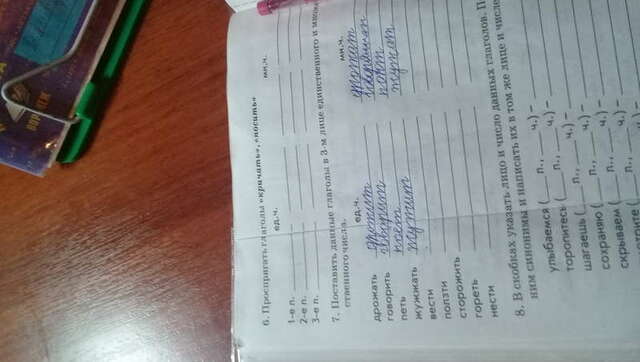 ВОРОНЕЖ
6. Проспрягать глаголы «кричать», «носить»
ед.ч. мн.ч.
1-е л.
2-е л.
3-е л.
7. Поставить данные глаголы в 3-м лице единственного и множе
ственного числа.
ед.ч. мн.ч.
дрожать дрожит дрожат
говорить говорит говорят
петь поёт поют
жужжать жужит жужат
вести
ползти
сторожить
гореть
нести
8. В скобках указать лицо и число данных глаголов. П
ним синонимы и написать их в том же лице и числе
улыбаемся (___л., ___ч.) –
торопитесь (___л., ___ч.) –
шагаешь (___л., ___ч.) –
сохраняю (___л., ___ч.) –
скрываем (___л., ___ч.) –
отрите (___л., ___ч.) –